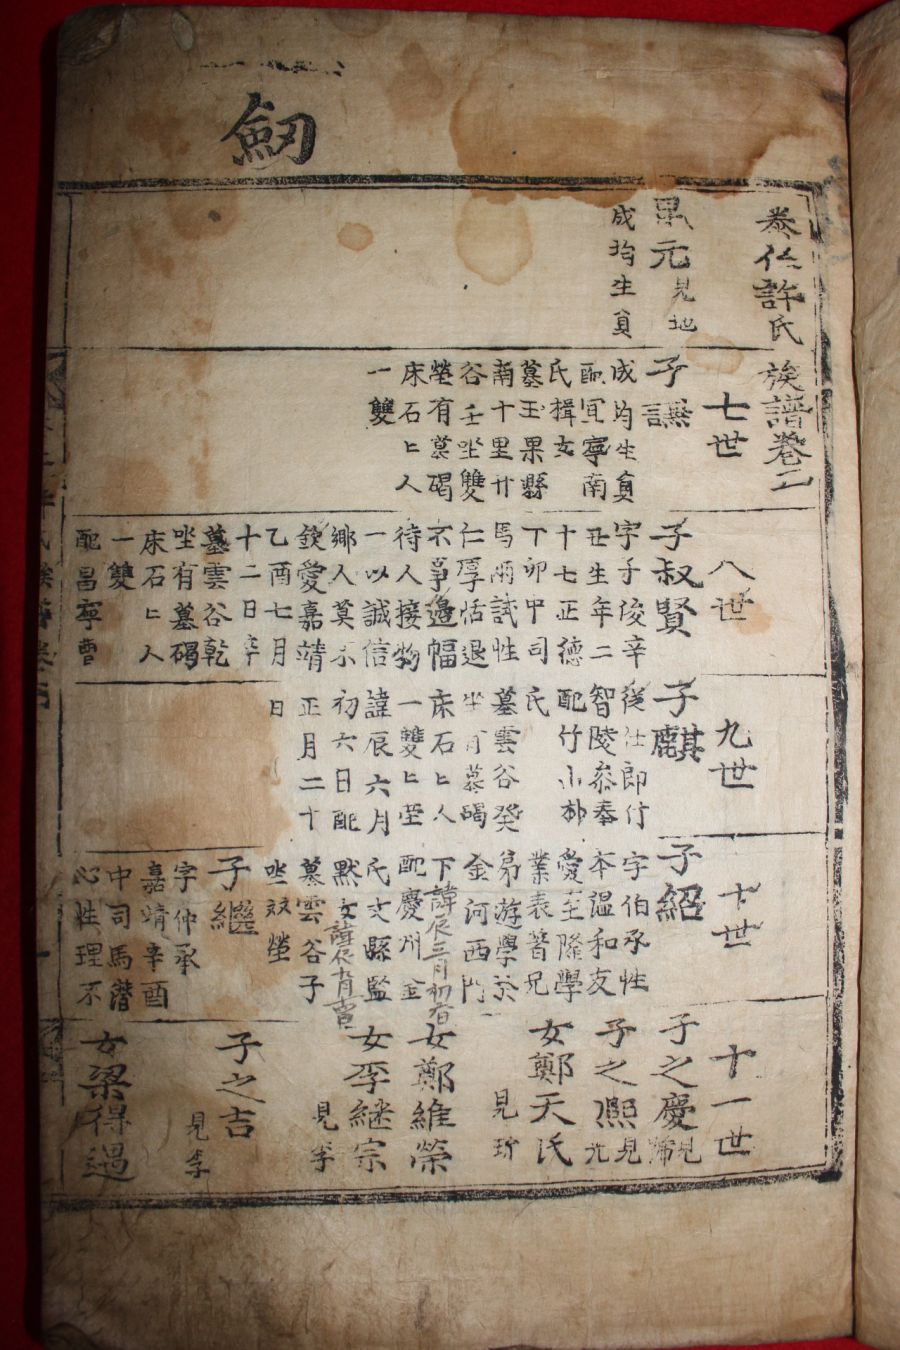 劒
泰仁許氏族譜卷二
元見地
成均生員
七世
子譕
成均生員
配宜寧南
氏楫女
墓玉果縣
南十里廿
谷壬坐雙
塋有墓碣
床石匕人
一雙
八世
子叔賢
字子俊辛
丑生年二
十七正德
丁卯甲司
馬兩試性
仁厚恬退
不事邊幅
待人接物
一以誠信
鄉人莫不
欽愛嘉靖
乙酉七月
十二日卒
墓雲谷乾
坐有墓碣
床石匕人
一雙
配昌寧曺
九世
子麒
從仕郎行
智陵叅奉
配竹山朴
氏
墓雲谷癸
坐有墓碣
床石匕人
一雙匕塋
諱辰六月
初六日配
正月二十
日
十世
子紹
字伯承性
本溫和友
愛至隆學
業表著兄
弟遊學於
金河西門
下諱辰三月初八日
配慶州金
氏丈縣監
默女諱辰九月
墓雲谷子
坐双塋
子繼
字仲承
嘉靖辛酉
中司馬潛
心性理不
十一世
子之慶見
子之熈見
女鄭天民
見
女鄭維榮
女李継宗
見李
子之吉
見李
女梁得過